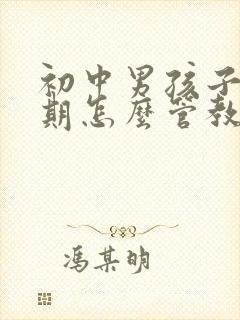 初中男孩子
期怎麼管教
馮某明